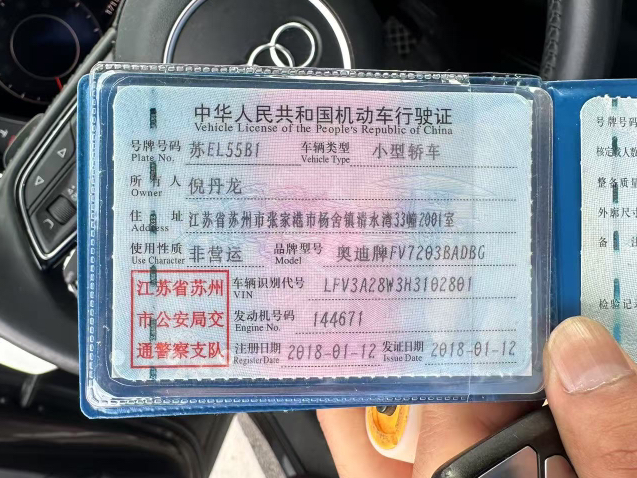 中华人民共和国机动车行驶证
Vehicle License of the People's Republic of China
号牌号码 苏EL55B1 车辆类型 小型轿车
Plate No. Vehicle Type
所有人 倪丹龙
Owner
住址 江苏省苏州市张家港市杨舍镇清水湾33幢2001室
Address
使用性质 非营运 品牌型号 奥迪牌FV7203BADBG
Use Character Model
江苏省苏州
市公安局交
通警察支队
车辆识别代号 LFV3A28W3H3102801
VIN
发动机号码 144671
Engine No.
注册日期 2018-01-12 发证日期 2018-01-12
Register Date Issue Date
号牌号码
核定载人数
整备质量
外廓尺
备注
检验记